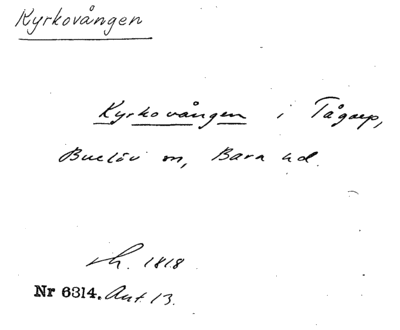 Kyrkovången
Kyrkovången i Tågarp,
Burlöv sn, Bara hd.
sh. 1818
Nr 6314. Ant 13.